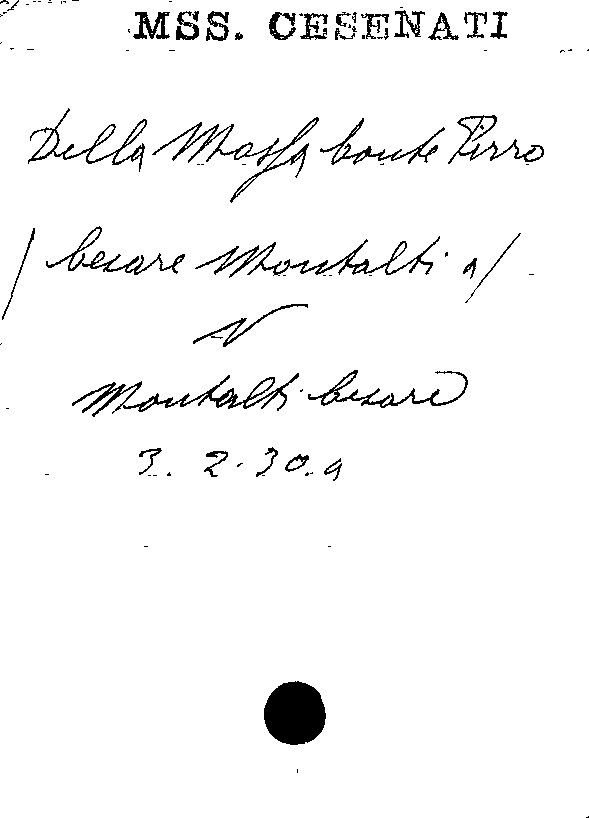 MSS. CESENATI
Della Massa Conte Pirro
/ Cesare Montalti a/
V
Montalti Cesare
3. 2. 30. a